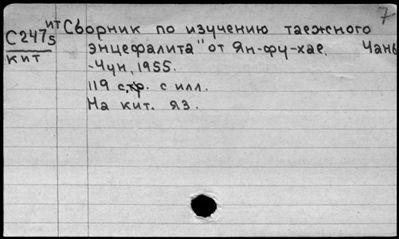 7
ит Сборник по изучению таежного
С247s энцефалита" от Ян-фу-хае. Чань
кит -Чун, 1955.
119 стр. с илл.
На кит. яз.